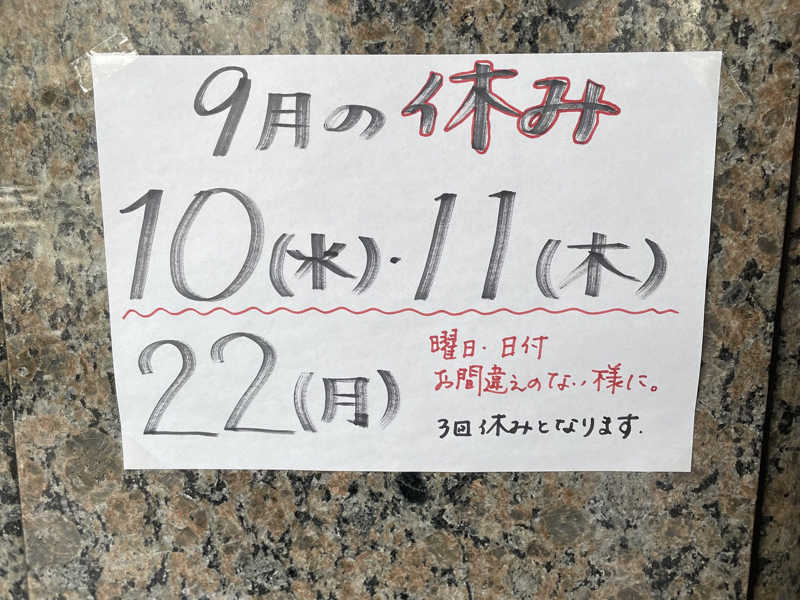 9月の休み
10(水)・11(木)
22(月)
曜日・日付
お間違えのない様に。
3回休みとなります.